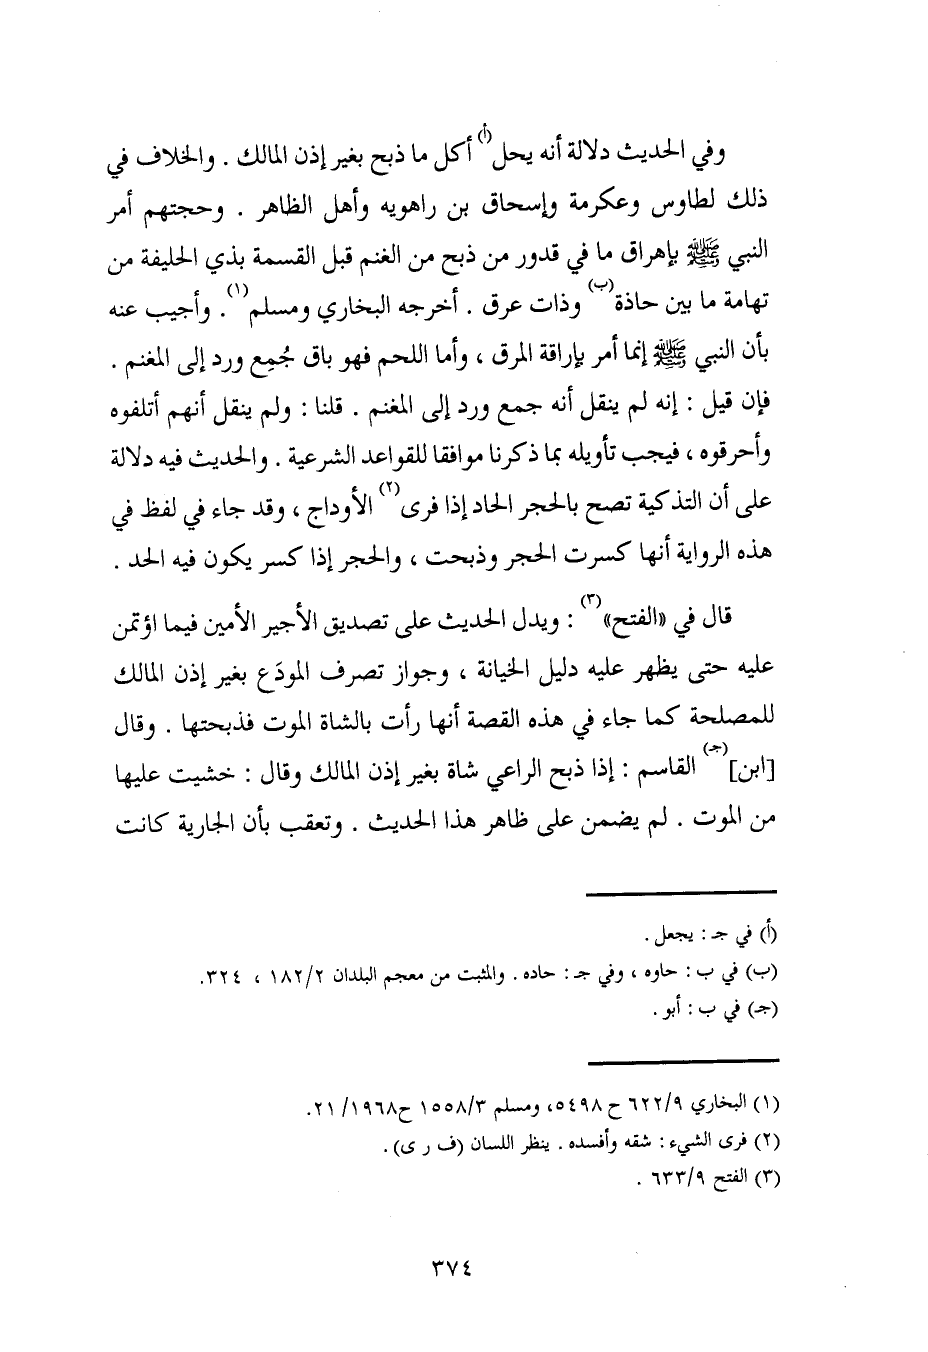 وفي الحديث دلالة أنه يحل(أ) أكل ما ذبح بغير إذن المالك . والخلاف في
ذلك لطاوس وعكرمة وإسحاق بن راهويه وأهل الظاهر . وحجتهم أمر
النبي ﷺ بإهراق ما في قدور من ذبح من الغنم قبل القسمة بذي الحليفة من
تهامة ما بين حاذة(ب) وذات عرق . أخرجه البخاري ومسلم(١). وأجيب عنه
بأن النبي ﷺ إنما أمر بإراقة المرق ، وأما اللحم فهو باق جُمِع ورد إلى المغنم .
فإن قيل : إنه لم ينقل أنه جمع ورد إلى المغنم . قلنا : ولم ينقل أنهم أتلفوه
وأحرقوه ، فيجب تأويله بما ذكرنا موافقا للقواعد الشرعية . والحديث فيه دلالة
على أن التذكية تصح بالحجر الحاد إذا فرى(٢) الأوداج ، وقد جاء في لفظ في
هذه الرواية أنها كسرت الحجر وذبحت ، والحجر إذا كسر يكون فيه الحد .
قال في «الفتح»(٣) : ويدل الحديث على تصديق الأجير الأمين فيما اؤتمن
عليه حتى يظهر عليه دليل الخيانة ، وجواز تصرف المودَع بغير إذن المالك
للمصلحة كما جاء في هذه القصة أنها رأت بالشاة الموت فذبحتها . وقال
[ابن](جـ) القاسم : إذا ذبح الراعي شاة بغير إذن المالك وقال : خشيت عليها
من الموت . لم يضمن على ظاهر هذا الحديث . وتعقب بأن الجارية كانت
(أ) في جـ : يجعل .
(ب) في ب : حاوه ، وفي جـ : حاده . والمثبت من معجم البلدان ١٨٢/٢ ، ٣٢٤.
(جـ) في ب : أبو .
(١) البخاري ٦٢٢/٩ ح ٥٤٩٨، ومسلم ١٥٥٨/٣ ح١٩٦٨/ ٢١.
(٢) فرى الشيء : شقه وأفسده . ينظر اللسان (ف ر ى) .
(٣) الفتح ٦٣٣/٩ .
٣٧٤